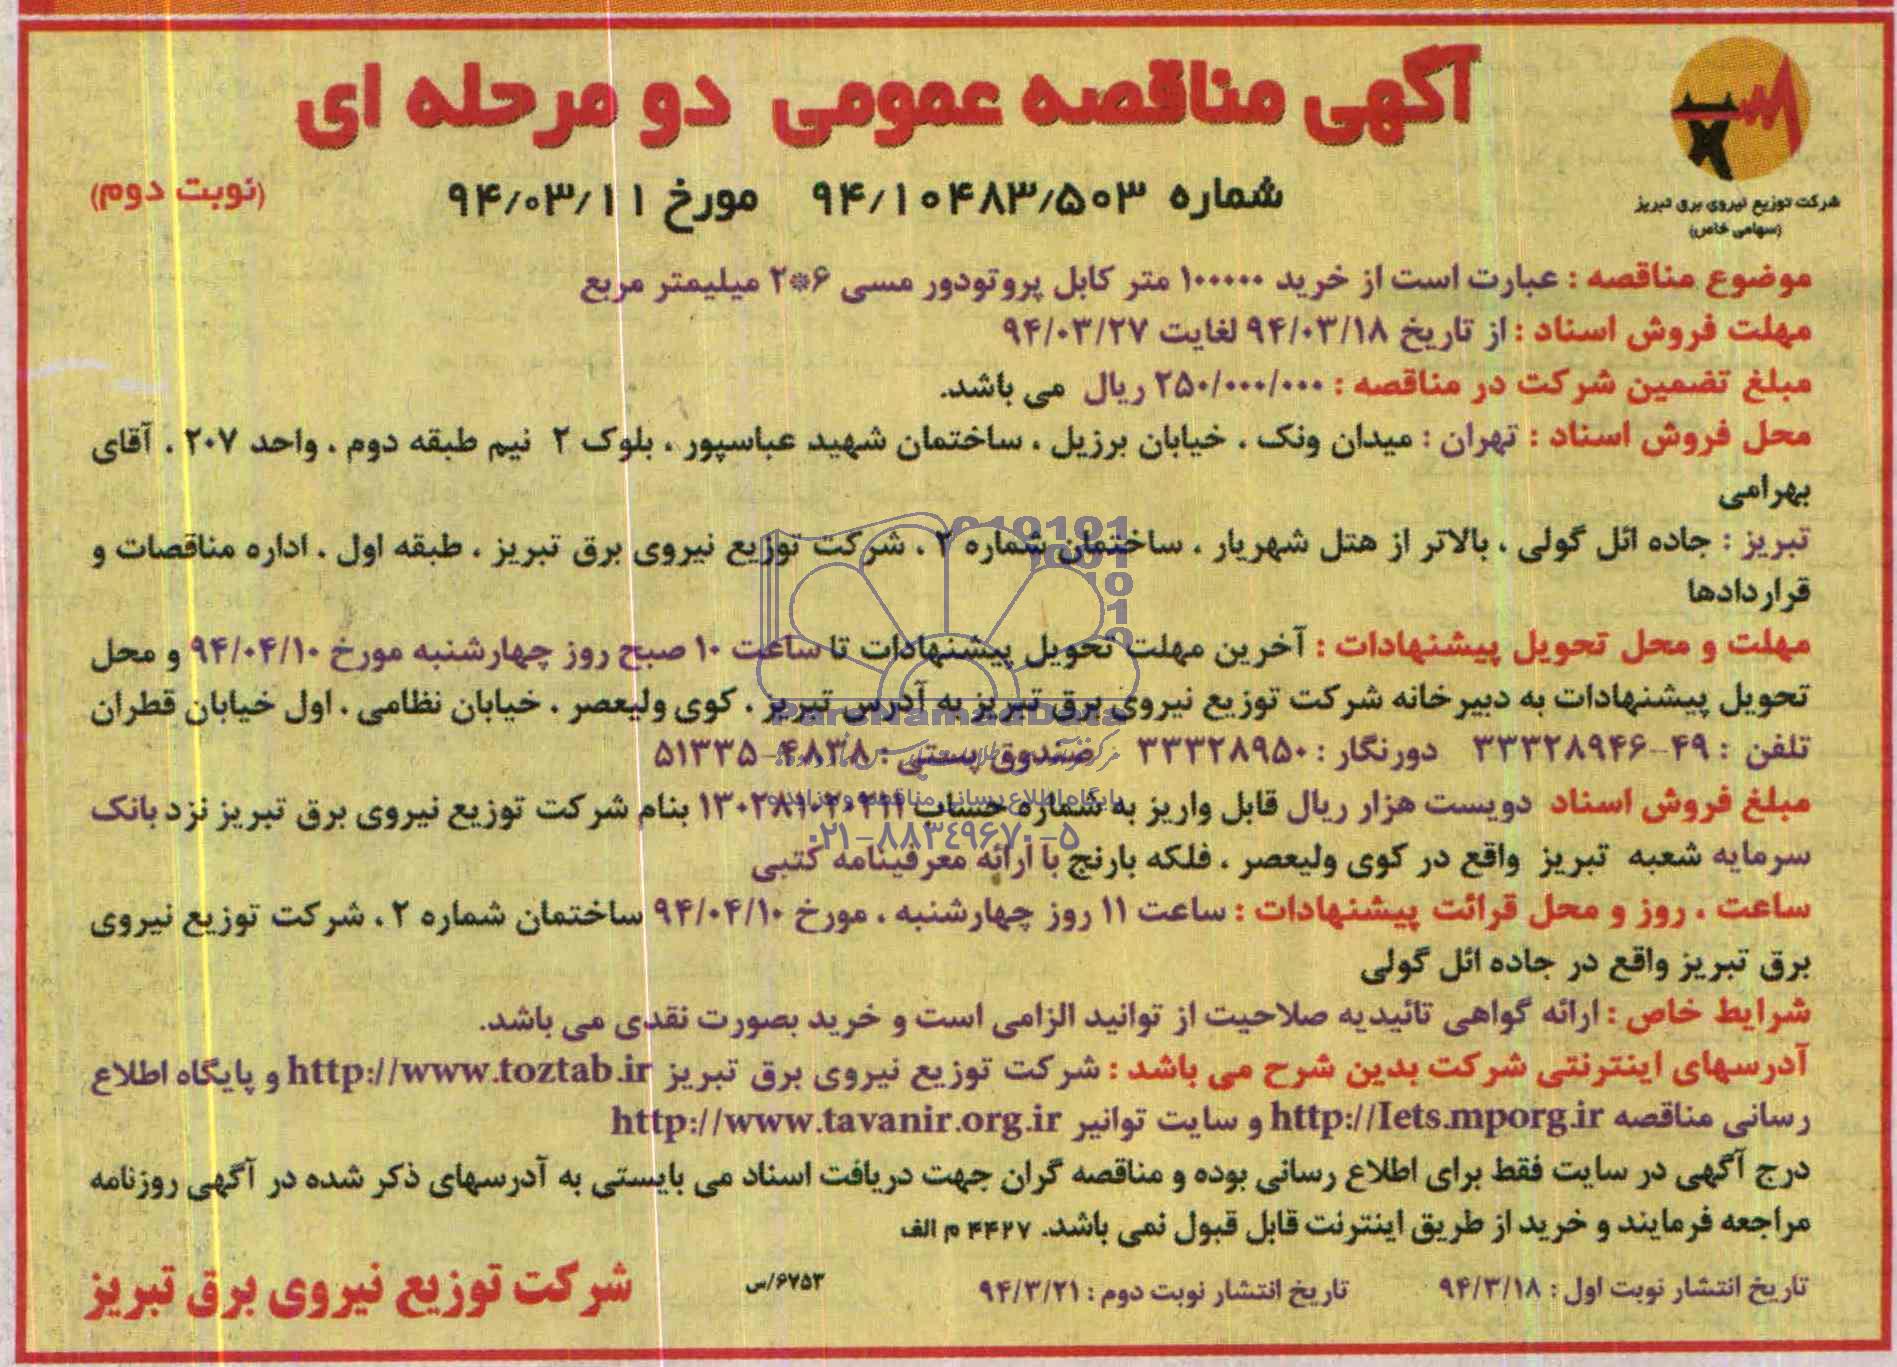 آگهی مناقصه عمومی دو مرحله ای
شماره ۹۴/۱۰۴۸۳/۵۰۳ مورخ ۹۴/۰۳/۱۱
(نوبت دوم)
شرکت توزیع نیروی برق تبریز
(سهامی خاص)
موضوع مناقصه : عبارت است از خرید ۱۰۰۰۰۰ متر کابل پروتودور مسی ۶*۲ میلیمتر مربع
مهلت فروش اسناد : از تاریخ ۹۴/۰۳/۱۸ لغایت ۹۴/۰۳/۲۷
مبلغ تضمین شرکت در مناقصه : ۲۵۰/۰۰۰/۰۰۰ ریال می باشد.
محل فروش اسناد : تهران : میدان ونک ، خیابان برزیل ، ساختمان شهید عباسپور ، بلوک ۲ نیم طبقه دوم ، واحد ۲۰۷ ، آقای
بهرامی
تبریز : جاده ائل گولی ، بالاتر از هتل شهریار ، ساختمان شماره ۲ ، شرکت توزیع نیروی برق تبریز ، طبقه اول ، اداره مناقصات و
قراردادها
مهلت و محل تحویل پیشنهادات : آخرین مهلت تحویل پیشنهادات تا ساعت ۱۰ صبح روز چهارشنبه مورخ ۹۴/۰۴/۱۰ و محل
تحویل پیشنهادات به دبیرخانه شرکت توزیع نیروی برق تبریز به آدرس تبریز ، کوی ولیعصر ، خیابان نظامی ، اول خیابان قطران
تلفن : ۴۹-۳۳۳۲۸۹۴۶ دورنگار : ۳۳۳۲۸۹۵۰ صندوق پستی : ۴۸۳۸-۵۱۳۳۵
مبلغ فروش اسناد دویست هزار ریال قابل واریز به شماره حساب بنام شرکت توزیع نیروی برق تبریز نزد بانک
سرمایه شعبه تبریز واقع در کوی ولیعصر ، فلکه بارنج با ارائه معرفینامه کتبی
ساعت ، روز و محل قرائت پیشنهادات : ساعت ۱۱ روز چهارشنبه ، مورخ ۹۴/۰۴/۱۰ ساختمان شماره ۲ ، شرکت توزیع نیروی
برق تبریز واقع در جاده ائل گولی
شرایط خاص : ارائه گواهی تائیدیه صلاحیت از توانید الزامی است و خرید بصورت نقدی می باشد.
آدرسهای اینترنتی شرکت بدین شرح می باشد : شرکت توزیع نیروی برق تبریز http://www.toztab.ir و پایگاه اطلاع
رسانی مناقصه http://Iets.mporg.ir و سایت توانیر http://www.tavanir.org.ir
درج آگهی در سایت فقط برای اطلاع رسانی بوده و مناقصه گران جهت دریافت اسناد می بایستی به آدرسهای ذکر شده در آگهی روزنامه
مراجعه فرمایند و خرید از طریق اینترنت قابل قبول نمی باشد. ۴۴۲۷ م الف
تاریخ انتشار نوبت اول : ۹۴/۳/۱۸ تاریخ انتشار نوبت دوم : ۹۴/۳/۲۱
۶۷۵۳/س
شرکت توزیع نیروی برق تبریز
ParsNamadData
پایگاه اطلاع رسانی مناقصه و مزایده
۰۲۱-۸۸۳۴۹۶۷۰-۵